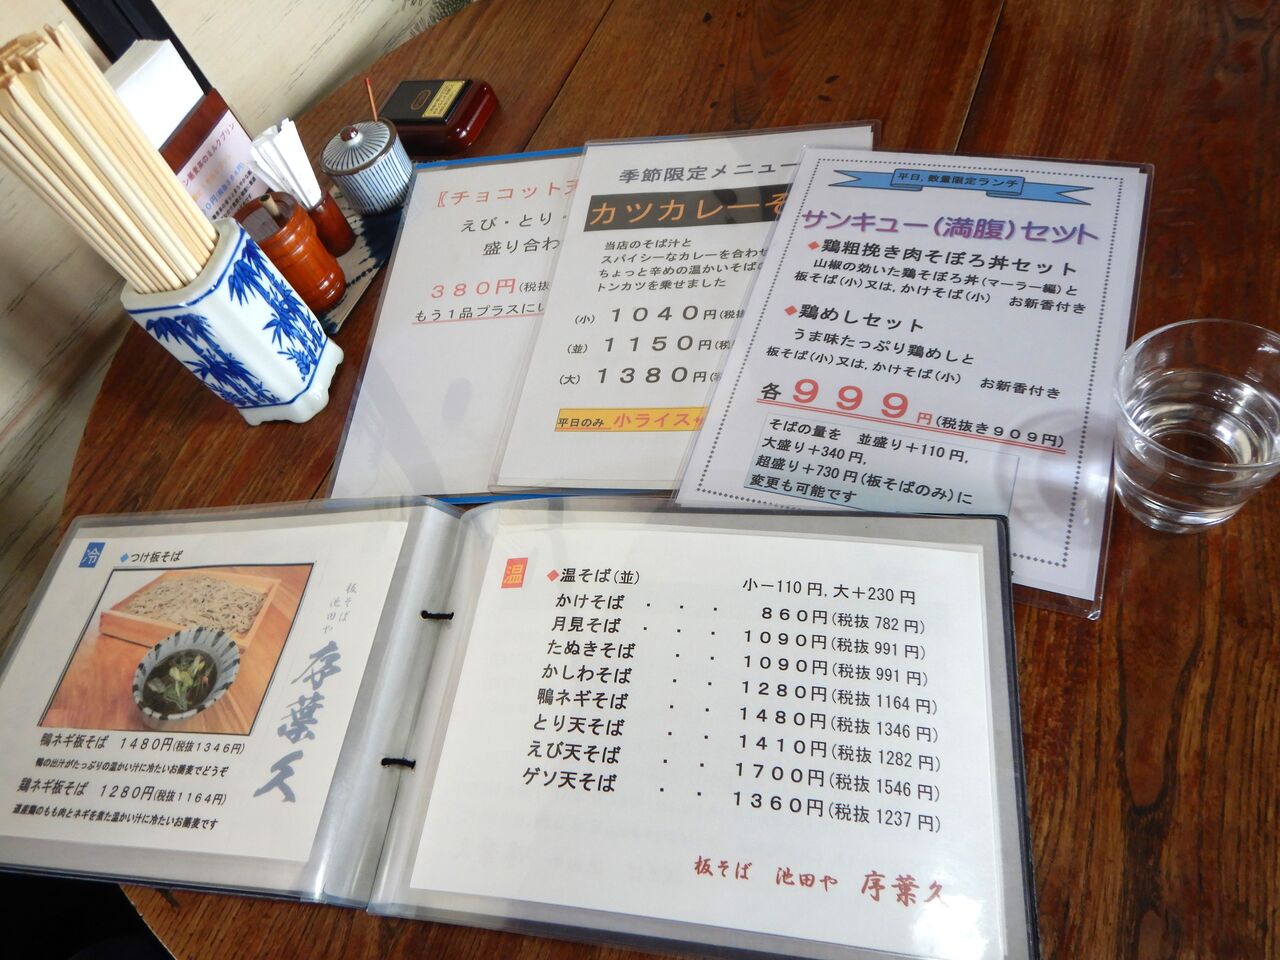 〖チョコット天
えび・とり・
盛り合わ
３８０円(税抜
もう１品プラスにい
季節限定メニュー
カツカレーそ
当店のそば汁と
スパイシーなカレーを合わせ
ちょっと辛めの温かいそばの
トンカツを乗せました
(小) １０４０円(税抜
(並) １１５０円(税
(大) １３８０円(
平日のみ 小ライス
平日、数量限定ランチ
サンキュー(満腹)セット
◆鶏粗挽き肉そぼろ丼セット
山椒の効いた鶏そぼろ丼(マーラー編)と
板そば(小)又は、かけそば(小) お新香付き
◆鶏めしセット
うま味たっぷり鶏めしと
板そば(小)又は、かけそば(小) お新香付き
各９９９円(税抜き９０９円)
そばの量を 並盛り＋110円、
大盛り＋340円、
超盛り＋730円(板そばのみ)に
変更も可能です
冷 ◆つけ板そば
板そば
池田や
序葉久
鴨ネギ板そば １４８０円(税抜１３４６円)
鴨の出汁がたっぷりの温かい汁に冷たいお蕎麦でどうぞ
鶏ネギ板そば １２８０円(税抜１１６４円)
道産鶏のもも肉とネギを煮た温かい汁に冷たいお蕎麦です
温 ◆温そば(並) 小－110円、大＋230円
かけそば ・・・ ８６０円(税抜 782円)
月見そば ・・・ １０９０円(税抜 991円)
たぬきそば ・・ １０９０円(税抜 991円)
かしわそば ・・ １２８０円(税抜 1164円)
鴨ネギそば ・・ １４８０円(税抜 1346円)
とり天そば ・・ １４１０円(税抜 1282円)
えび天そば ・・ １７００円(税抜 1546円)
ゲソ天そば ・・ １３６０円(税抜 1237円)
板そば 池田や 序葉久